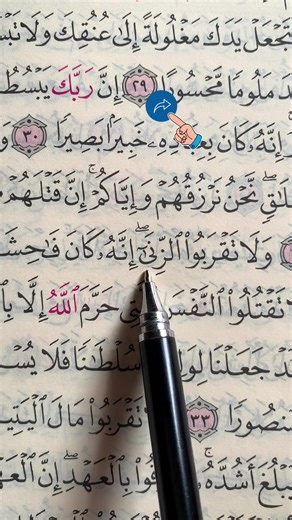 تَجۡعَلۡ يَدَكَ مَغۡلُولَةً إِلَىٰ عُنُقِكَ وَلَا
مَلُومٗا مَّحۡسُورًا ٢٩ إِنَّ رَبَّكَ يَبۡسُطُ
إِنَّهُۥ كَانَ خَبِيرَۢا بَصِيرٗا ٣٠
نَّحۡنُ نَرۡزُقُهُمۡ وَإِيَّاكُمۡۚ إِنَّ قَتۡلَهُمۡ
وَلَا تَقۡرَبُواْ ٱلزِّنَىٰٓۖ إِنَّهُۥ كَانَ
تَقۡتُلُواْ ٱلنَّفۡسَ حَرَّمَ ٱللَّهُ إِلَّا
جَعَلۡنَا سُلۡطَٰنٗا فَلَا
مَنصُورٗا ٣٣ تَقۡرَبُواْ مَالَ
أَشُدَّهُۥۚ بِٱلۡعَهۡدِۖ إِنَّ